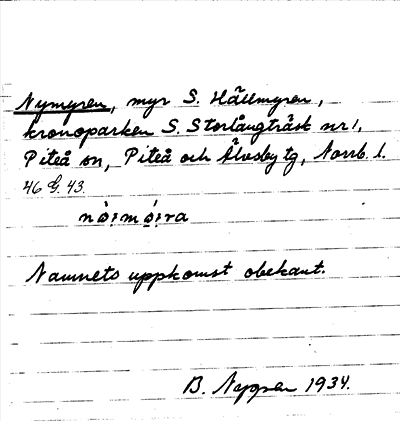 Nymyren, myr S. Hällmyren,
kronoparken S. Storlångträsk nr 1,
Piteå sn, Piteå och Älvsby tg, Norrb. l.
46 G. 43.
nø̀ːmø̀ːra
Namnets uppkomst obekant.
B. 1934.